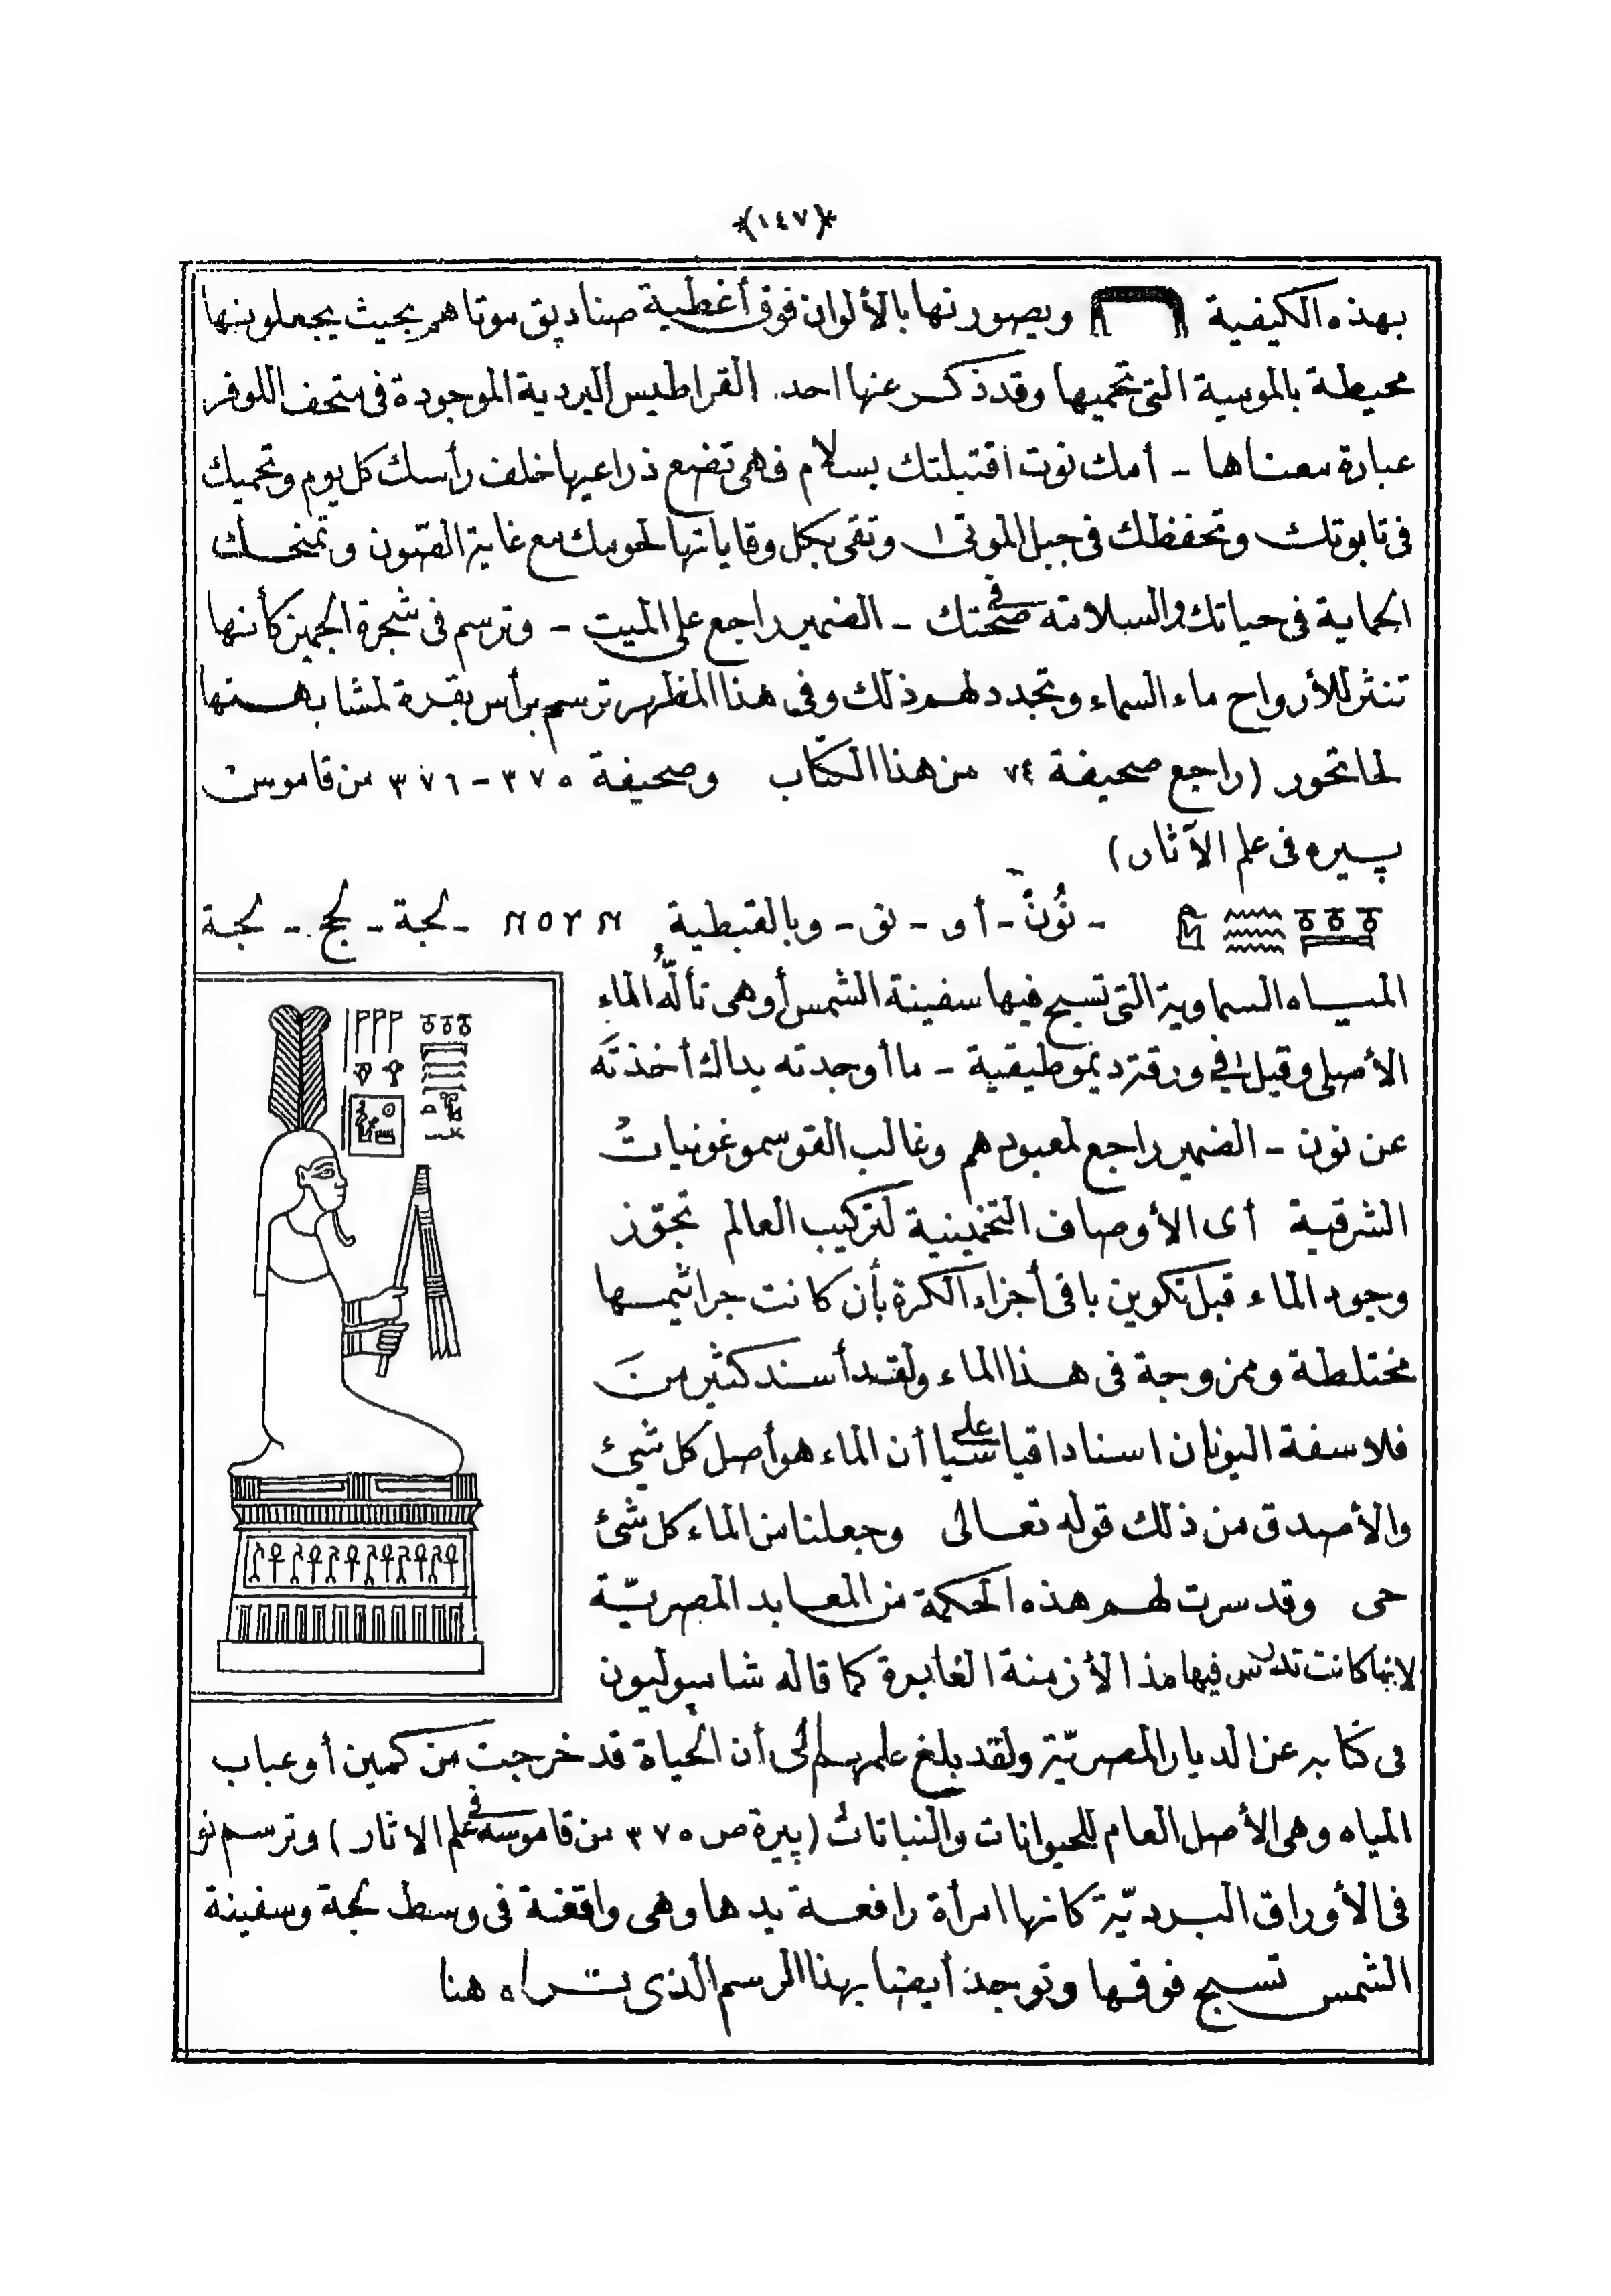 ﴿١٤٧﴾
بهذه الكيفية ويصورنها بالألوان فوق أغطية صناديق موتاهم بحيث يجعلونها
محيطة بالمومية التى تحميها وقد ذكر عنها احد القراطيس البردية الموجودة فى متحف اللوفر
عبارة معناها - أمك نوت اقتبلتك بسلام فهى تضع ذراعيها خلف رأسك كل يوم وتحميك
فى تابوتك وتحفظك فى جبل الموتى وتقى بكل وقاياتها لحومك مع غاية الصون وتمنحك
الحماية فى حياتك والسلامة فى صحتك - الضمير راجع على الميت - وترسم فى شجرة الجميز كأنها
تنثر للأرواح ماء السماء وتجدد لهم ذلك وفى هذا المظهر ترسم برأس بقرة لمشابهتها
لحاتحور (راجع صحيفة ٧٤ من هذا الكتاب وصحيفة ٣٧٥-٣٧٦ من قاموس
پيره فى علم الآثار)
- نُونٌ - أو - نو - وبالقبطية ⲛⲟⲩⲛ - لجة - لج - لجة
المياه السماوية التى تسبح فيها سفينة الشمس أو هى تألُّه الماء
الأصلى وقيل فى ورقة ديموطيقية - ما أوجدته يداك أخذته
عن نون - الضمير راجع لمعبودهم وغالب القوسموغونيات
الشرقية أى الأوصاف التخمينية لتركيب العالم تجوّز
وجود الماء قبل تكوين باقى أجزاء الكرة بأن كانت جراثيمها
مختلطة وممزوجة فى هذا الماء ولقد أسند كثير من
فلاسفة اليونان اسنادا قياسيا على أن الماء هو أصل كل شئ
والأصدق من ذلك قوله تعالى وجعلنا من الماء كل شئ
حى وقد سرت لهم هذه الحكمة من المعابد المصريّة
لانها كانت تدرس فيها مذ الأزمنة الغابرة كما قاله شامبوليون
فى كتابه عن الديار المصريّة ولقد بلغ علمهم الى أن الحياة قد خرجت من كمين أو عباب
المياه وهى الأصل العام للحيوانات والنباتات (پيرة ص ٣٧٥ من قاموسه فى علم الاثار) وترسم نو
فى الأوراق البرديّة كانها امرأة رافعة يدها وهى واقفة فى وسط لجة وسفينة
الشمس تسبح فوقها وتوجد أيضا بهذا الرسم الذى تراه هنا